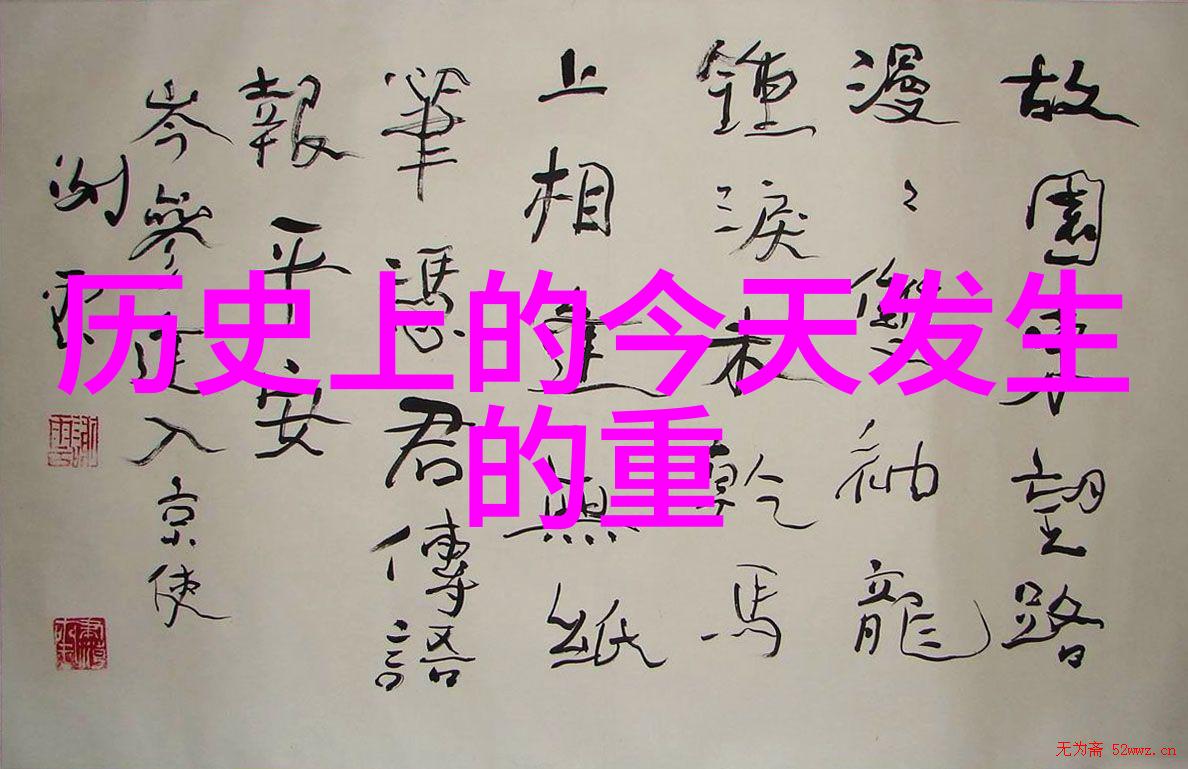 故園東望路
漫〻雙袖龍
鍾淚未乾馬
上相逢無紙
筆憑君傳語
報平安
岑參逢入京使
历史上的今天发生
的重
无为斋 52wwz.cn